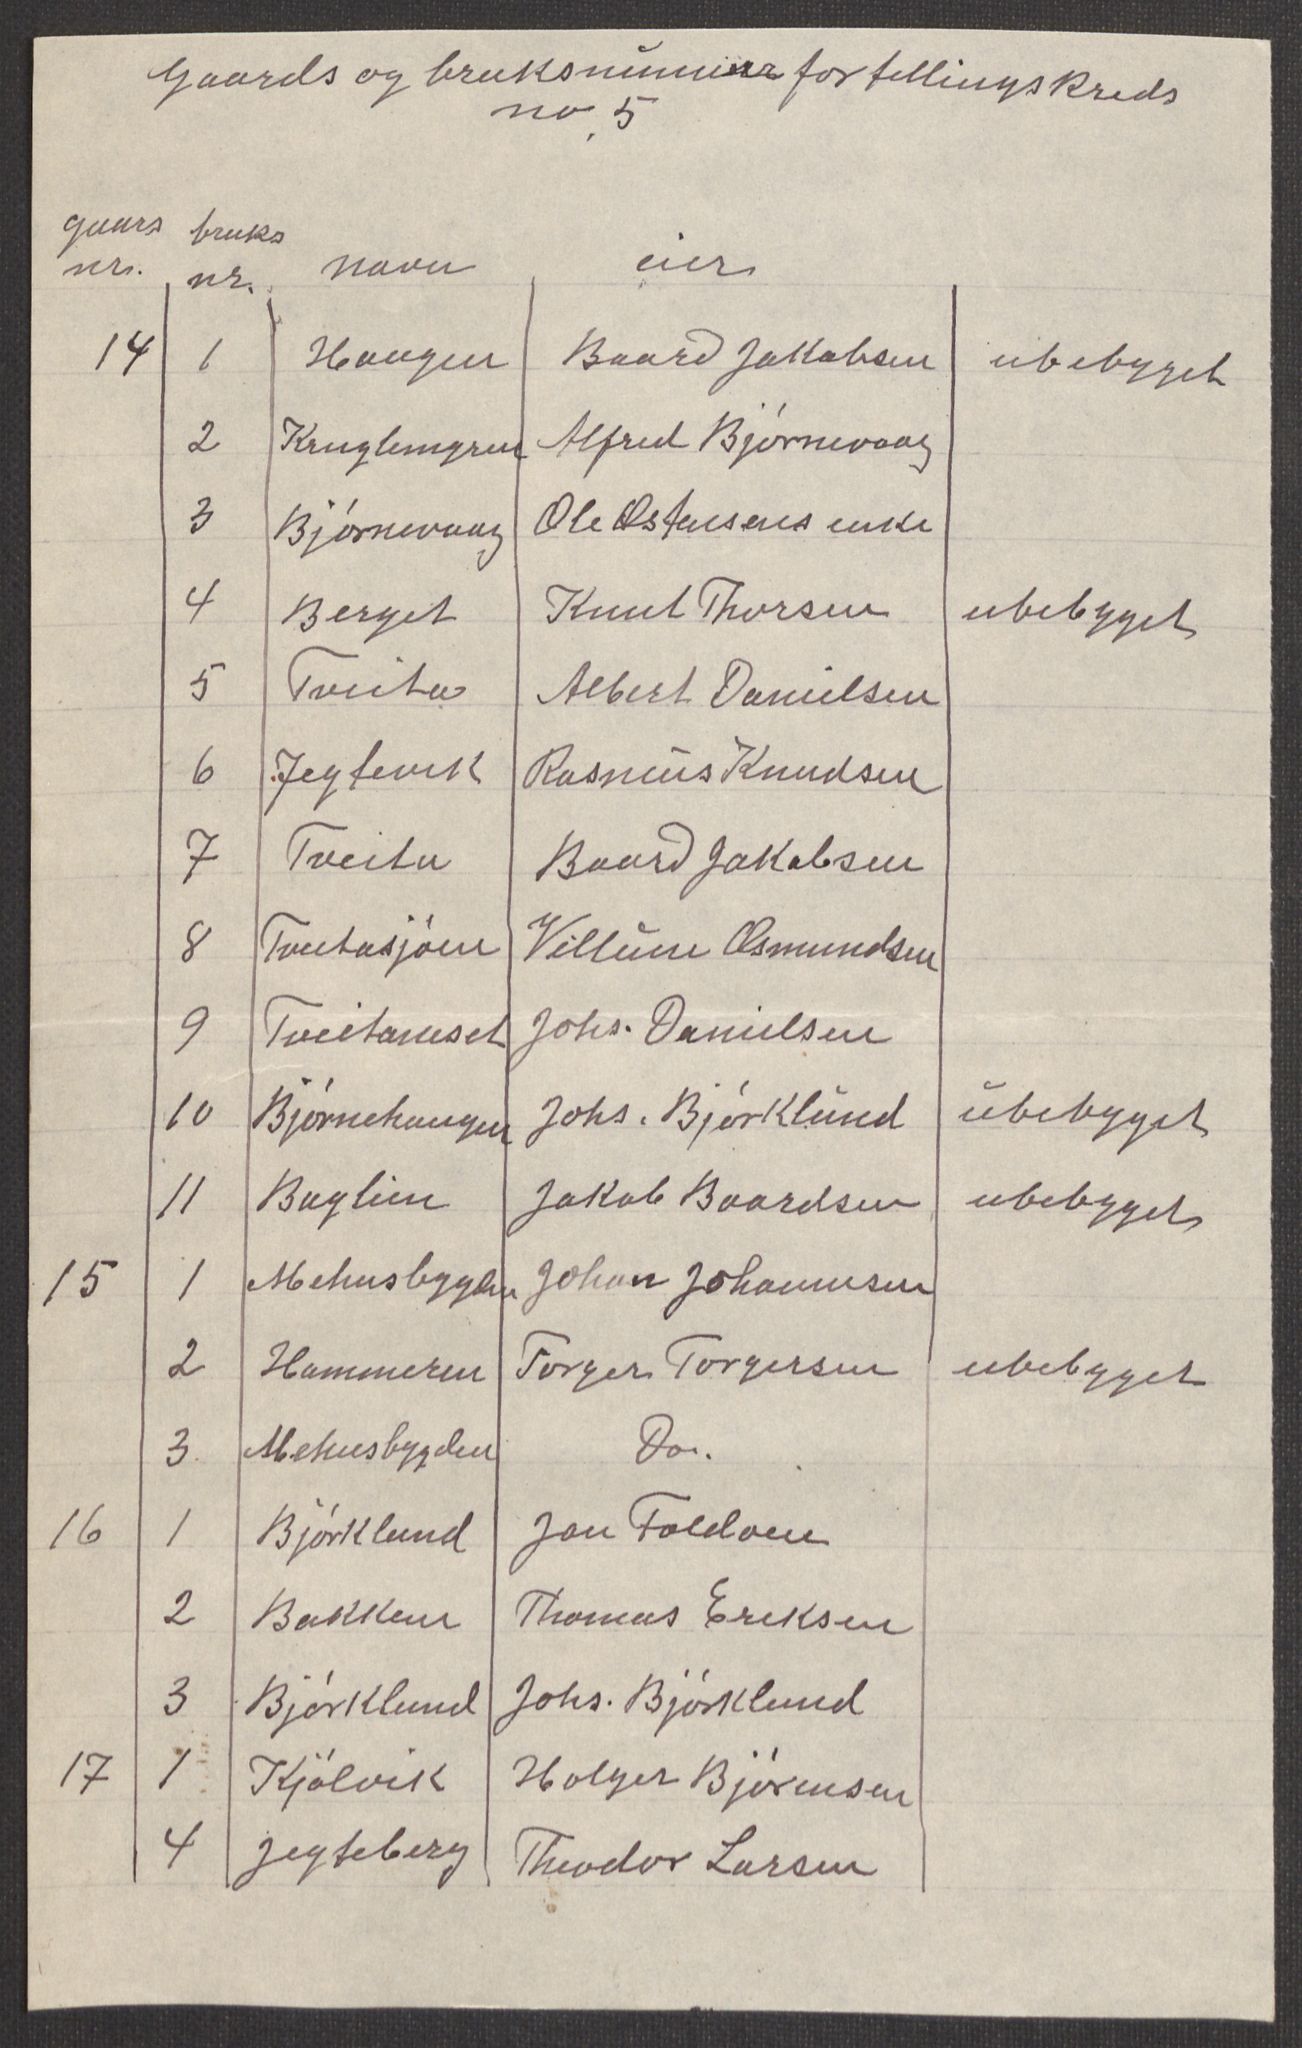 Gaards og bruksnummer for tellingskreds
no. 5
gaars nr. bruks nr. navn eier
14 1 Haugen Baard Jakobsen ubebygget
2 Kruglemyren Alfred Bjørnevaag
3 Bjørnevaag Ole Østensens enke
4 Berget Knut Thorsen ubebygget
5 Tveita Albert Danielsen
6 Jegtevik Rasmus Knudsen
7 Tveita Baard Jakobsen
8 Tveitasjøen Villum Osmundsen
9 Tveitaneset Johs. Danielsen
10 Bjørnehaugen Johs. Bjørklund ubebygget
11 Baglien Jakob Baardsen ubebygget
15 1 Mehusbygden Johan Johannesen
2 Hammeren Torger Torgersen ubebygget
3 Mehusbygden Do.
16 1 Bjørklund Jon Foldøen
2 Bakken Thomas Eriksen
3 Bjørklund Johs. Bjørklund
17 1 Kjølvik Holger Bjørnsen
4 Jegteberg Theodor Larsen